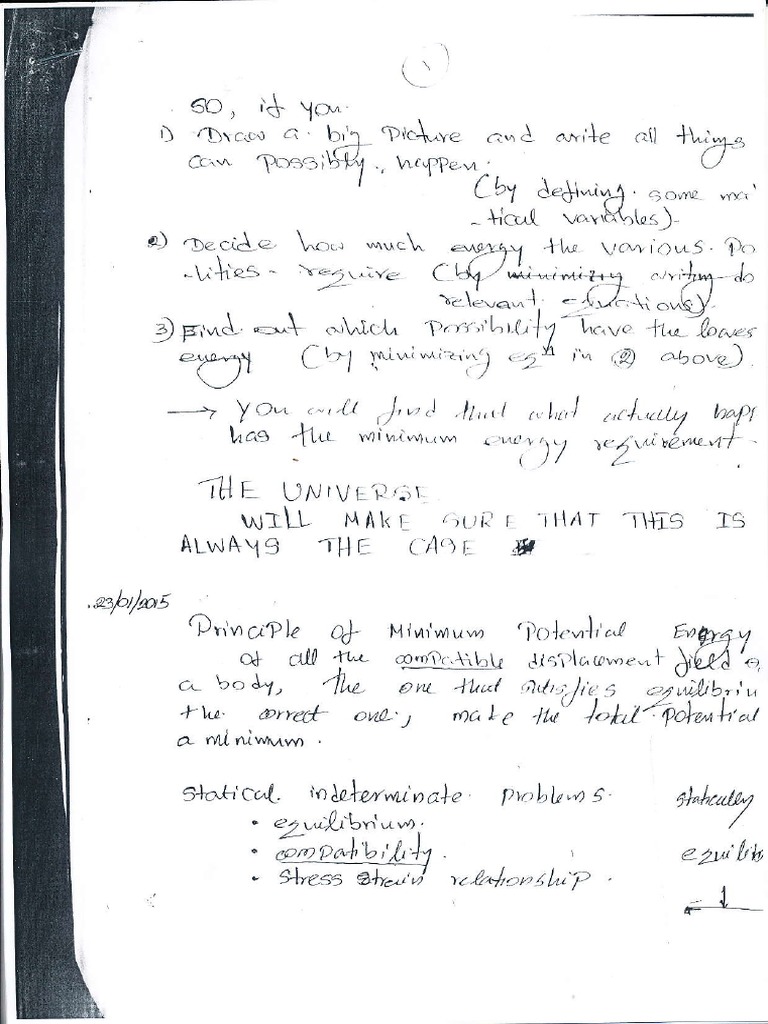 1
SO, if you.
1) Draw a big Picture and write all things
can Possibly, happen.
(by defining some ma
-tical variables)-
2) Decide how much energy the various Po
-lities - require (by minimizing writing do
relevant equations).
3) Find out which Possibility have the lowes
energy (by minimizing eqn in ② above).
→ You will find that what actually happ
has the minimum energy requirement.
THE UNIVERSE
WILL MAKE SURE THAT THIS IS
ALWAYS THE CASE
23/01/2015
Principle of Minimum Potential Energy
of all the compatible displacement field o
a body, the one that satisfies equilibriu
the correct one, make the total potential
a minimum.
Statical indeterminate Problems. statically
• equilibrium.
• compatibility. equilib
• stress strain relationship.